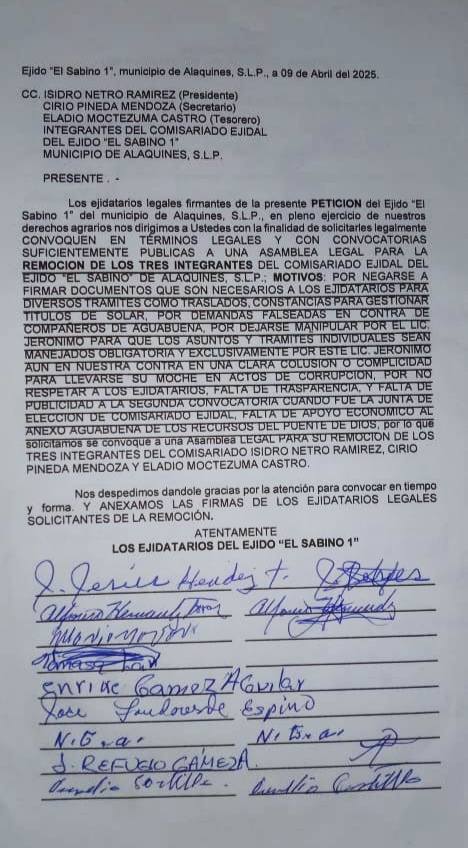 Ejido "El Sabino 1", municipio de Alaquines, S.L.P., a 09 de Abril del 2025.
CC. ISIDRO NETRO RAMIREZ (Presidente)
CIRIO PINEDA MENDOZA (Secretario)
ELADIO MOCTEZUMA CASTRO (Tesorero)
INTEGRANTES DEL COMISARIADO EJIDAL
DEL EJIDO "EL SABINO 1"
MUNICIPIO DE ALAQUINES, S.L.P.
PRESENTE . -
Los ejidatarios legales firmantes de la presente PETICION del Ejido "El
Sabino 1" del municipio de Alaquines, S.L.P., en pleno ejercicio de nuestros
derechos agrarios nos dirigimos a Ustedes con la finalidad de solicitarles legalmente
CONVOQUEN EN TÉRMINOS LEGALES Y CON CONVOCATORIAS
SUFICIENTEMENTE PUBLICAS A UNA ASAMBLEA LEGAL PARA LA
REMOCION DE LOS TRES INTEGRANTES DEL COMISARIADO EJIDAL DEL
EJIDO "EL SABINO" DE ALAQUINES, S.L.P.; MOTIVOS: POR NEGARSE A
FIRMAR DOCUMENTOS QUE SON NECESARIOS A LOS EJIDATARIOS PARA
DIVERSOS TRAMITES COMO TRASLADOS, CONSTANCIAS PARA GESTIONAR
TITULOS DE SOLAR, POR DEMANDAS FALSEADAS EN CONTRA DE
COMPAÑEROS DE AGUABUENA, POR DEJARSE MANIPULAR POR EL LIC.
JERONIMO PARA QUE LOS ASUNTOS Y TRAMITES INDIVIDUALES SEAN
MANEJADOS OBLIGATORIA Y EXCLUSIVAMENTE POR ESTE LIC. JERONIMO
AUN EN NUESTRA CONTRA EN UNA CLARA COLUSION O COMPLICIDAD
PARA LLEVARSE SU MOCHE EN ACTOS DE CORRUPCION, POR NO
RESPETAR A LOS EJIDATARIOS, FALTA DE TRASPARENCIA, Y FALTA DE
PUBLICIDAD A LA SEGUNDA CONVOCATORIA CUANDO FUE LA JUNTA DE
ELECCION DE COMISARIADO EJIDAL, FALTA DE APOYO ECONOMICO AL
ANEXO AGUABUENA DE LOS RECURSOS DEL PUENTE DE DIOS, por lo que
solicitamos se convoque a una Asamblea LEGAL PARA SU REMOCION DE LOS
TRES INTEGRANTES DEL COMISARIADO ISIDRO NETRO RAMIREZ, CIRIO
PINEDA MENDOZA Y ELADIO MOCTEZUMA CASTRO.
Nos despedimos dandole gracias por la atención para convocar en tiempo
y forma. Y ANEXAMOS LAS FIRMAS DE LOS EJIDATARIOS LEGALES
SOLICITANTES DE LA REMOCIÓN.
ATENTAMENTE
LOS EJIDATARIOS DEL EJIDO "EL SABINO 1"
J. Jesús Mendez t.
Alfonso
Tomasa
enrike Gamez Aguilar
Jose Espino
J. REFUGIO GÁMEZ A.